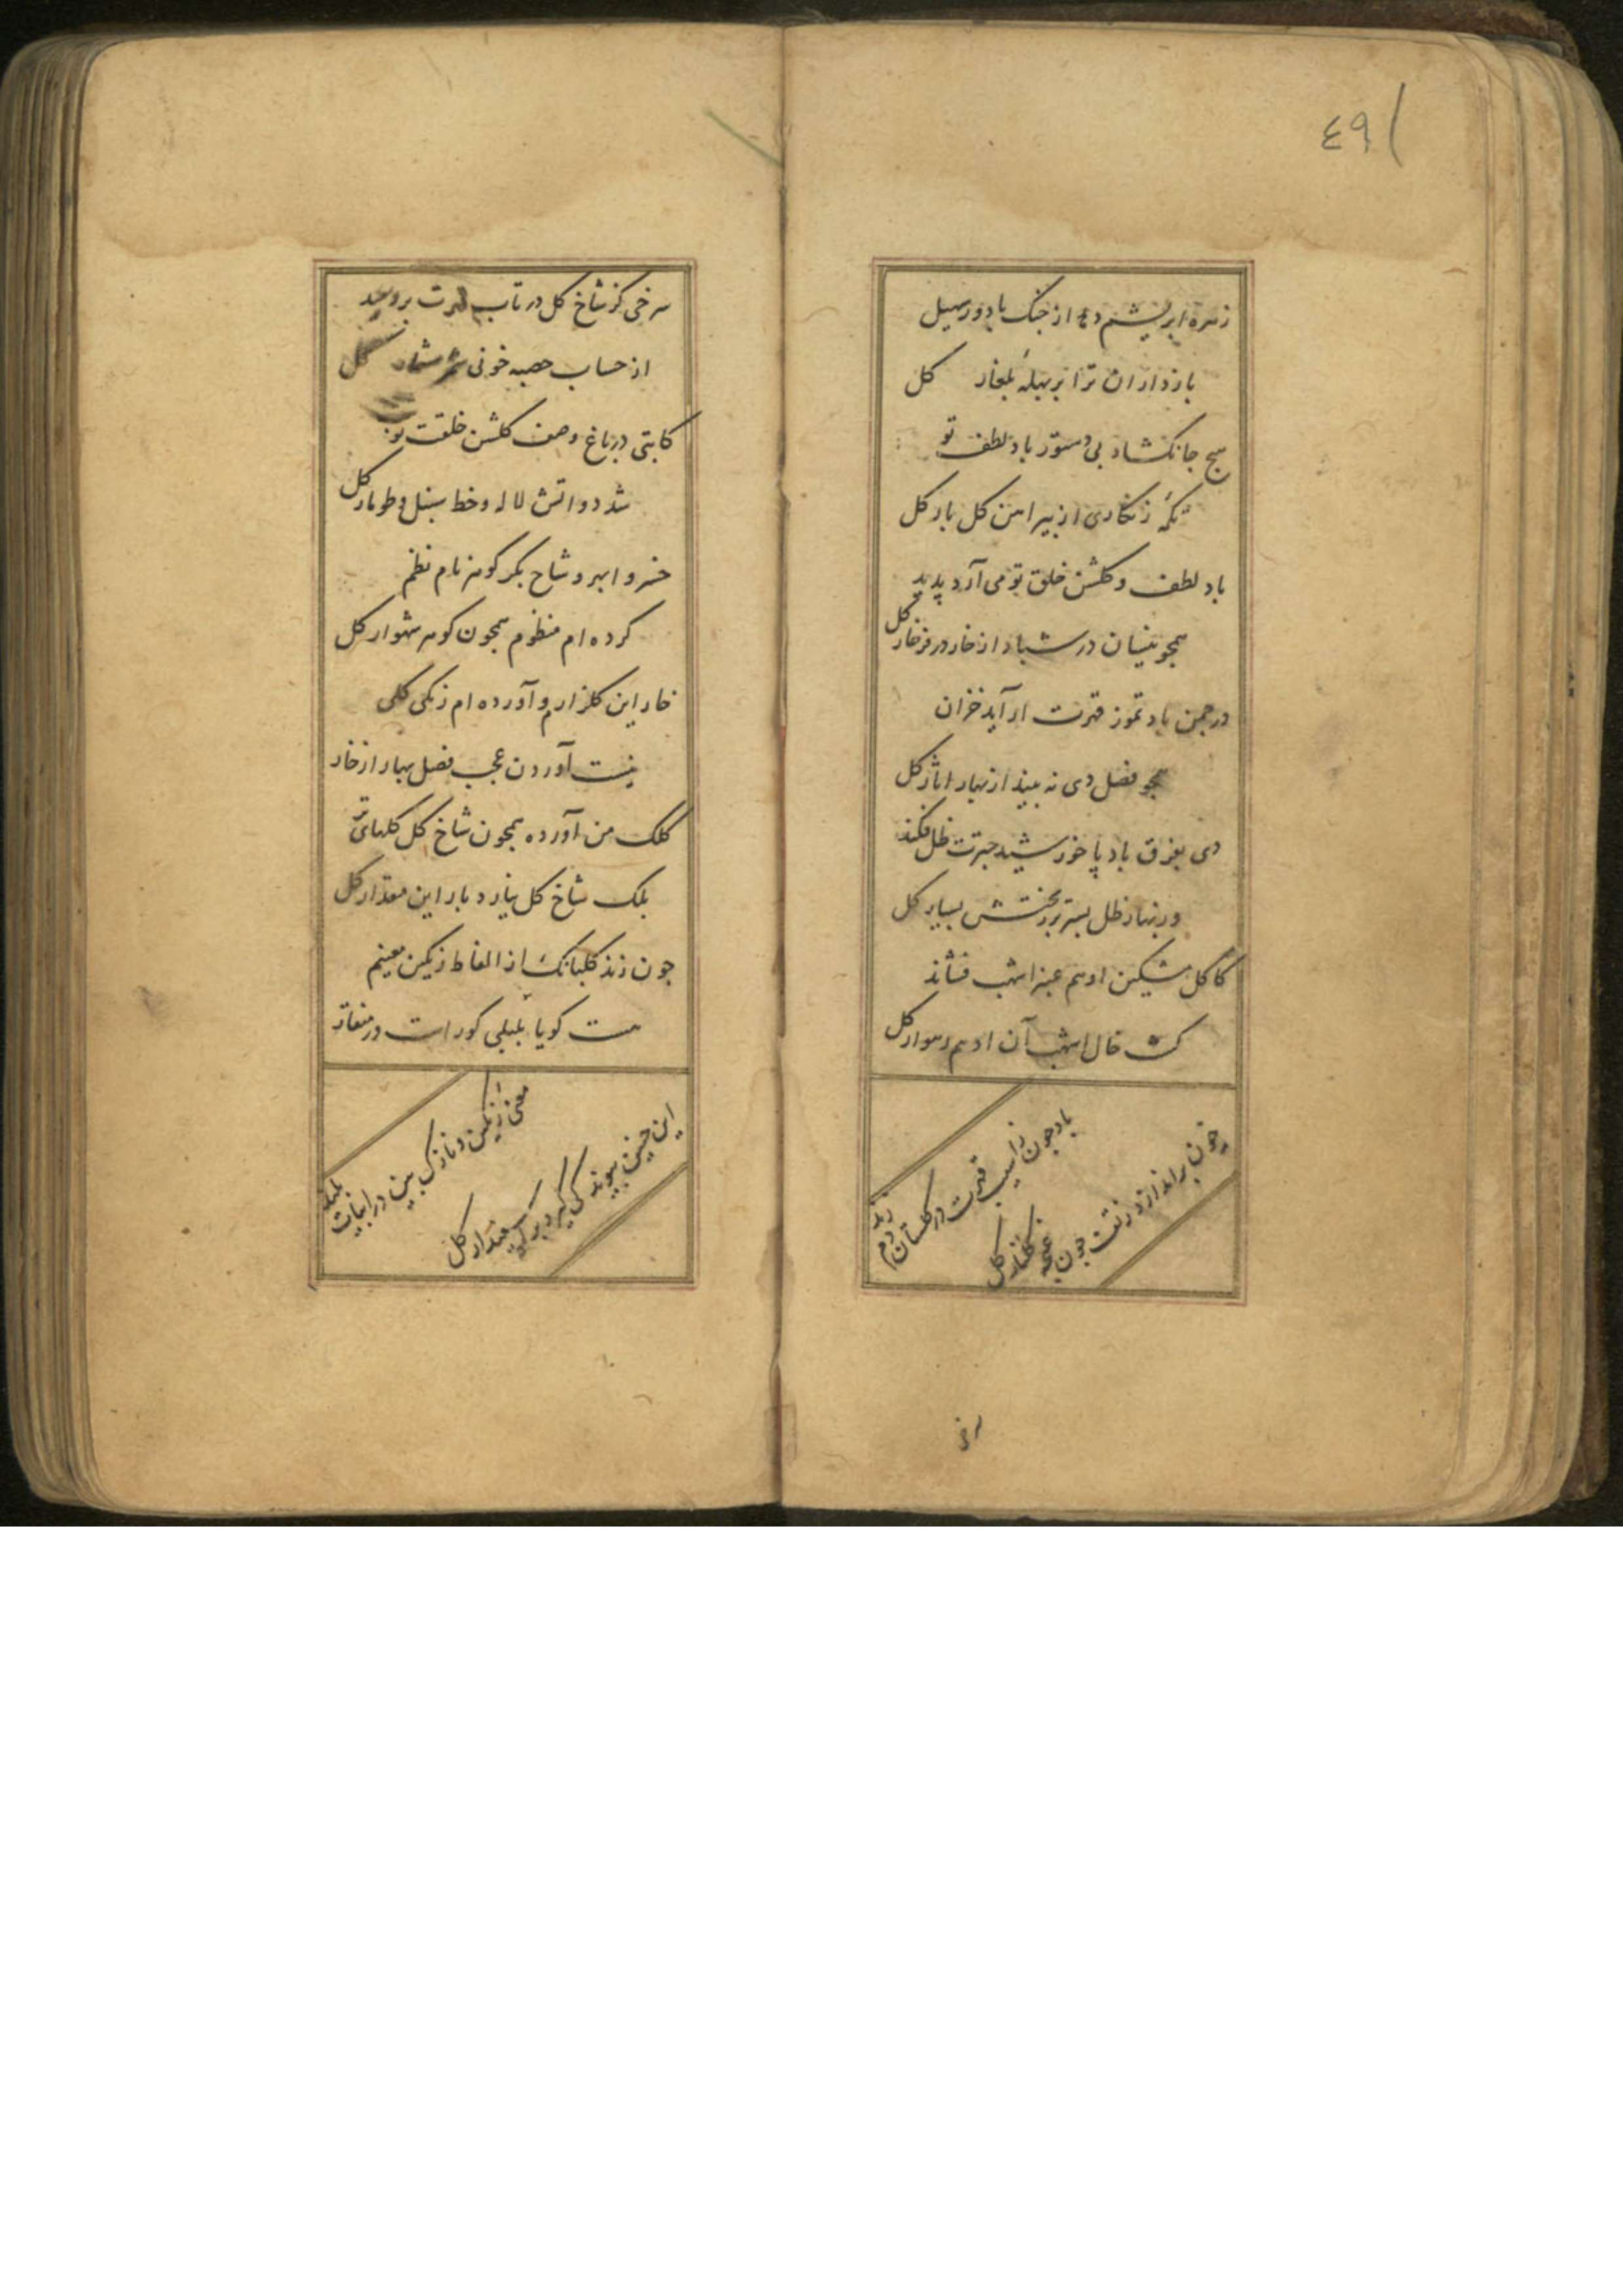 ٤٩١
زهره ابریشم دهد از جنک باد ورسیل
بازداران ترا بر بهلهٔ بلغار کل
هیچ جا نکشاد بی دستور باد لطف تو
تکمهٔ زنکاری از پیراهن کل بار کل
باد لطف و کلشن خلق تو می آرد پدید
همجو نیسان در شباد از خار ور فرخار کل
در جمن باد تموز قهرت ار آید خزان
همجو فصل دی نه بیند از بهار اثار کل
دی بفرق باد پا خورشید جترت ظل فکند
ور بهار ظل بستر بر تختش بسیار کل
کاکل مشکین ادهم عنبر اشهب فشاند
کشت خال اشهب آن ادهم رهوار کل
باد جون ز اسیب قهرت در کلستان دم زند
جون براندازد ز تفت جون غنجه کلنار کل
سرخی
سرخی کز شاخ کل در تاب قهرت بر دمید
از حساب حصبه خونی شمر شمار کل
کابتی در باغ وصف کلشن خلقت نوشت
شد دوا تش لاله و خط سنبل و طومار کل
خسروا بهر وشاح بکر کوهر نام نظم
کرده ام منظوم همجون کوهر شهوار کل
خار این کلزارم و آورده ام زنکی کلی
نیست آوردن عجب فصل بهار از خار
کلک من آورده همجون شاخ کل کلهای تر
بلک شاخ کل نیارد بار این مقدار کل
جون زند کلبانک از الفاظ زنکین معنیم
هست کویا بلبلی کوراست در منقار
معنی رنکین و نازک بین در ابیات بلند
این جنین پیوند کی کیرد بر کی مقدار کل